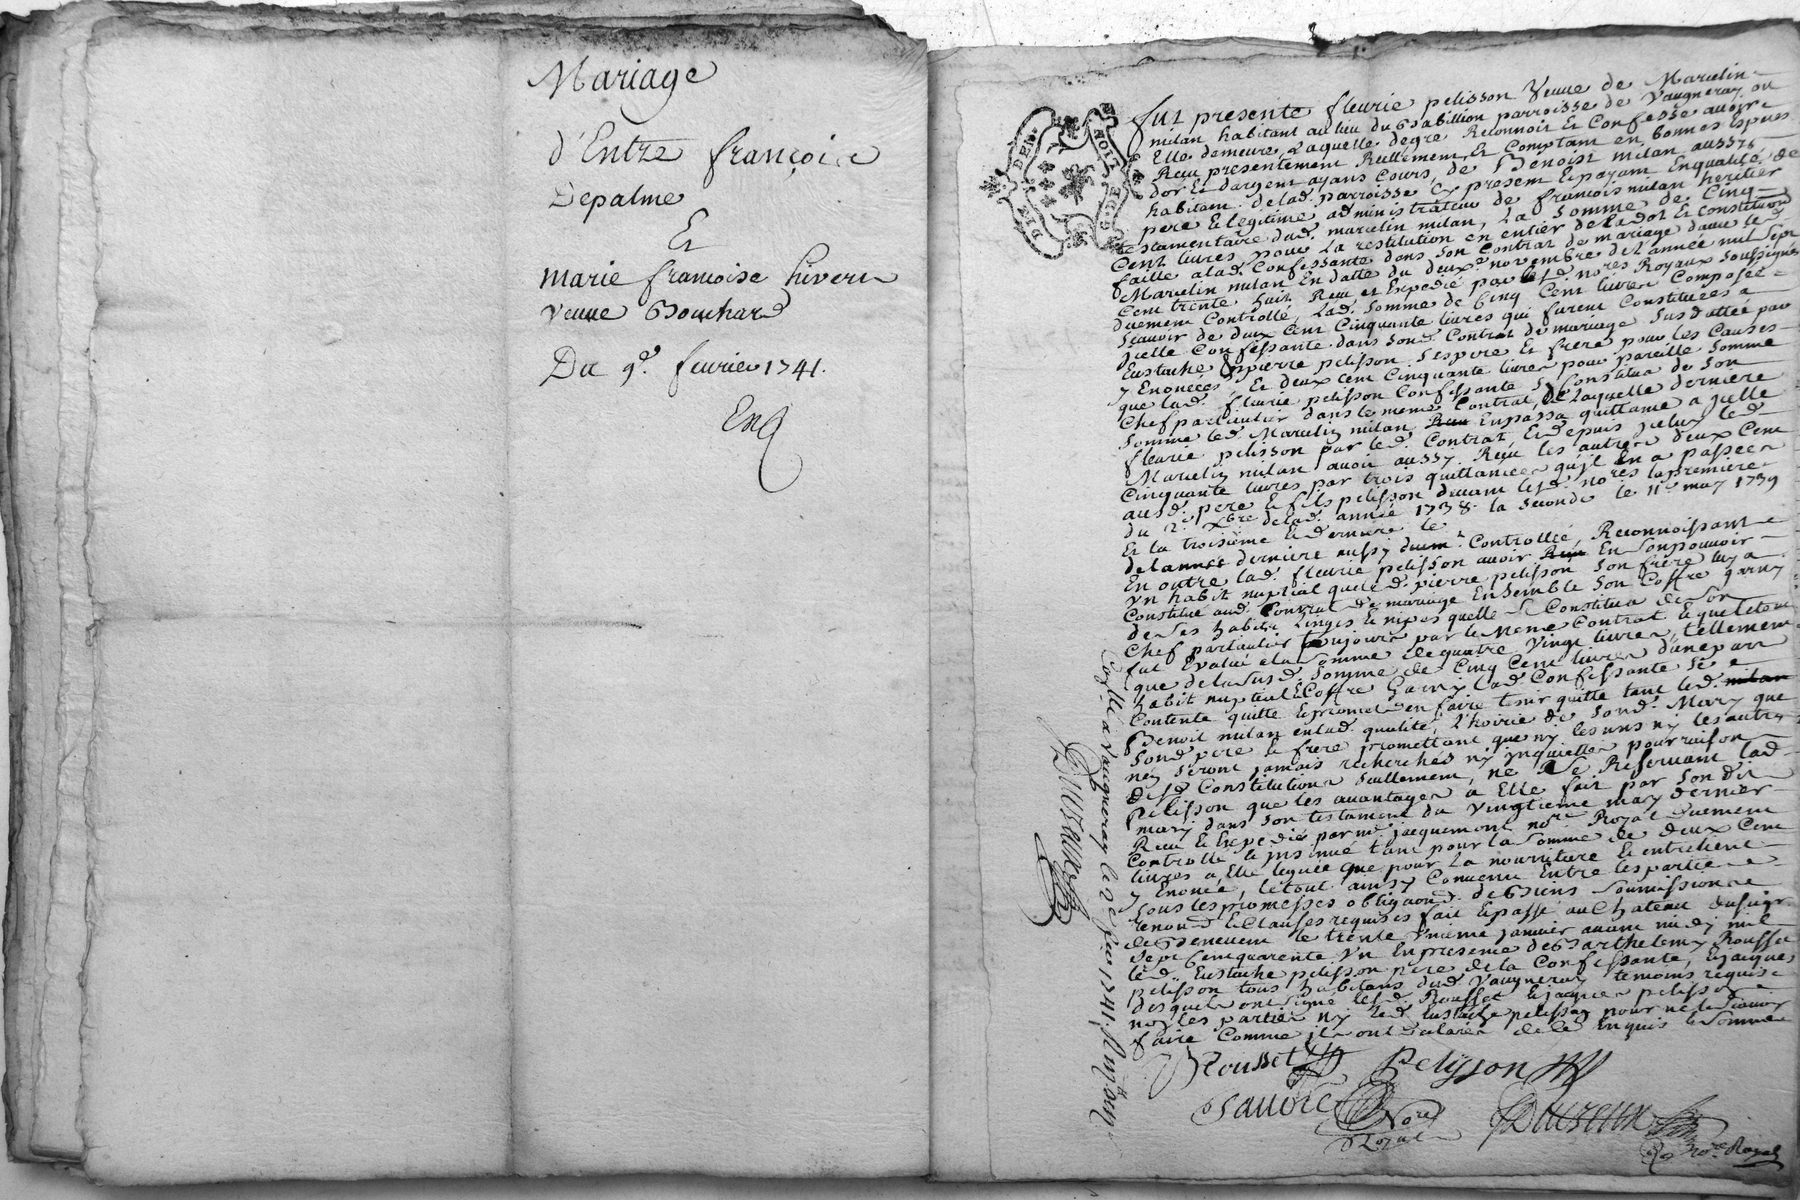 Mariage
d'Entre françoise
Depalme
Et
marie francoise hivern
veuve Bouchard
Du 9e. fevrier 1741.
Enq
GEN. DE LION
Fut presente fleurie pelisson Veuve de Marcelin
milan habitant au lieu du Babillion parroisse de Vaugneray ou
Elle demeure Laquelle degré Reconnoit Et Confesse avoir
Reçu presentement Reellement Et Comptant en bonnes espues
dor Et dargent ayans Cours, de Benoist milan aussy
habitant delad. parroisse Cy present Et payant Enqualité, de
pere Et legitime administrateur de francois milan heritier
testamentaire dud. marcelin milan, La somme de Cinq
Cent livres, pour La restitution en entier de La dot Et constitution
faitte alad. Confessante dans son Contrat de mariage avec led.
Marcelin milan En datte du deuxe. novembre de l'année mil sept
Cent trente huit Reçu et Expedié par lesd. nores Royaux soussignés
duement Controllé, Lad. somme de Cinq Cent livres Composée
scavoir de deux Cent Cinquante livres qui furent Constituées a
jcelle Confessante dans sond. Contrat de mariage sus datté par
Eustache Et pierre pelisson Sespere Et frere pour les Causes
y Enoncées, Et deux cent Cinquante livres pour pareille somme
que lad. fleurie pelisson Confessante se Constitua de son
Chef particulier dans le meme Contrat, de Laquelle derniere
somme led. Marcelin milan Reçu Enpassa quittance a jcelle
fleurie pelisson par led. Contrat, Et depuis jceluy led.
Marcelin milan avoir aussy Reçu les autres deux Cent
Cinquante livres par trois quittances qu'jl En a passées
ausd. pere Et fils pelisson devant lesd. nores la premiere
du 2e xbre delad. année 1738. la seconde le 11e may 1739
Et la troisieme Et derniere le
delannée derniere aussy duemt. Controllée, Reconnoissant
En outre lad. fleurie pelisson avoir Reçu En son pouvoir
un habit nuptial que led. pierre pelisson son frere luy a
Constitué aud. Contrat de mariage Ensemble son Coffre garny
de ses habits Linges Et nipes quelle se Constitua de son
Chef particulier toujours par le meme Contrat Lequel etoit
fut Evalué a la somme de quatre Vingt livres, tellement
que de la susd. somme de Cinq Cent livres d'une part
habit nuptial Et Coffre Garny lad. Confessante se
Contente quitte Et promet en faire tenir quitte tant led. milan
Benoit milan enlad. qualité, L'hoirie de sond. Mary que
sond. pere Et frere promettant que ny les uns ny les autres
ney seront jamais recherchés ny jnquietter pour raison
desd. Constitutions seullement, ne se Reservant lad.
Pelisson que les avantages a Elle fait par son dit
mary dans son testament du vingtieme mars dernier
Reçu Et Expedié par me. jacquemont nore Royal duement
Controllé Et jnsinué tant pour la somme de deux Cent
livres a Elle leguée que pour La nourriture Et entretient
y Enoncé, le tout ainsy Convenu Entre les parties
sous les promesses obligaons. de Biens soumissions
renond. Et Clauses requises fait Et passé au Chateau du
de Benevent le trente unieme janvier avant midy mil
sept Cent quarente un En presence de Barthelemy Rousset
led. Eustache pelisson pere de la Confessante, Et jacques
pelisson tous habitans dud. Vaugneray temoins requis
desquels ont signé lesd. Rousset Et jacques pelisson
non les parties ny led. Eustache pelisson pour ne le scavoir
faire Comme jls ont declaré de ce Enquis Et sommé
Rousset Pelisson
Savoie Nore Royal Dusreux nore Royal
Conllé a Vaugneray le 2e fev. 1741.